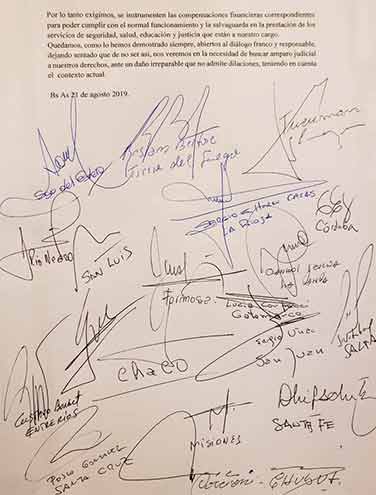 Por lo tanto exigimos, se instrumenten las compensaciones financieras correspondientes
para poder cumplir con el normal funcionamiento y la salvaguarda en la prestación de los
servicios de seguridad, salud, educación y justicia que están a nuestro cargo.
Quedamos, como lo hemos demostrado siempre, abiertos al diálogo franco y responsable,
dejando sentado que de no ser así, nos veremos en la necesidad de buscar amparo judicial
a nuestros derechos, ante un daño irreparable que no admite dilaciones, teniendo en cuenta
el contexto actual.
Bs As 21 de agosto 2019.
Tucuman
Tierra del Fuego
SERGIO CASAS
LA RIOJA
Córdoba
Rio Negro
SAN LUIS
Formosa
Lucia Corpacci
Catamarca
Sergio Uñac
San Juan
SALTA
CHACO
Gustavo Bordet
ENTRE RIOS
SANTA CRUZ
MISIONES
SANTA FE
CHUBUT